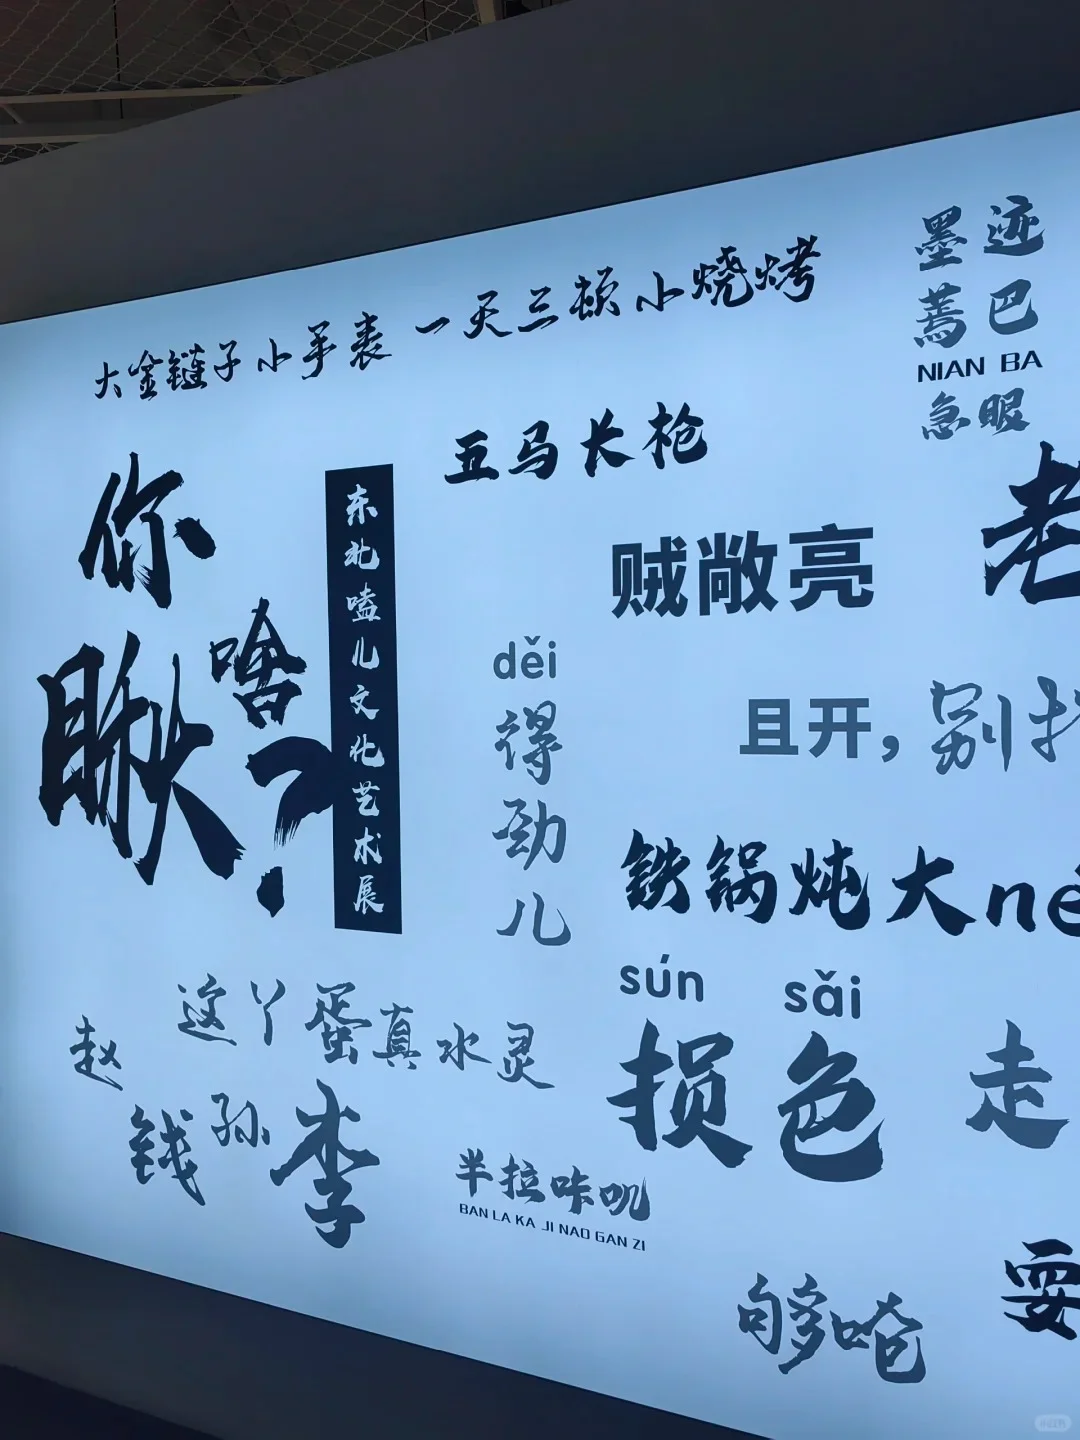 大金链子小手表 一天三顿小烧烤
墨迹
蔫巴
NIAN BA
急眼
五马长枪
你瞅啥?
东北嗑儿文化艺术展
贼敞亮
老
děi
得劲儿
且开，别
铁锅炖大n
sún sǎi
损色
走
这丫蛋真水灵
赵
钱孙李
半拉咔叽
BAN LA KA JI NAO GAN ZI
够呛
耍